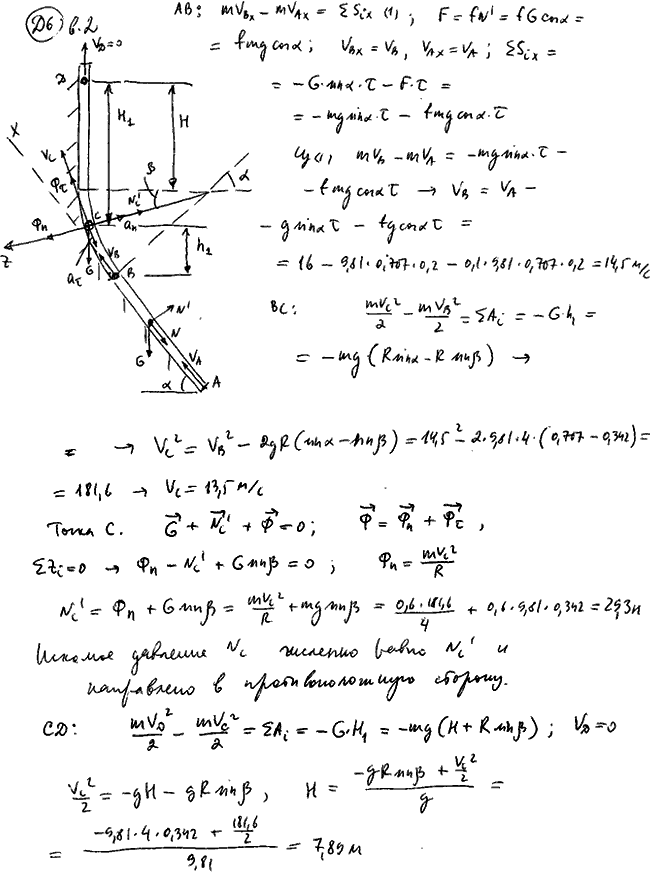 Д6) в.2
AB: mV_Bx − mV_Ax = ΣS_ix (1); F = fN' = fG cosα =
= fmg cosα; V_Bx = V_B, V_Ax = V_A; ΣS_ix =
= −G·sinα·τ − F·τ =
= −mg sinα·τ − fmg cosα·τ
mV_B − mV_A = −mg sinα·τ −
− fmg cosα τ → V_B = V_A −
− g sinα τ − fg cosα τ =
= 16 − 9,81·0,707·0,2 − 0,1·9,81·0,707·0,2 = 14,5 м/с
V_D=0
D
H_1
H
X
V_C
Φ_τ
β
α
N_C'
Φ_n
C
a_n
Z
a_τ
G
V_B
B
h_1
N'
N
G
V_A
α
A
BC: mV_C²/2 − mV_B²/2 = ΣA_i = −G·h_1 =
= −mg (R sinα − R sinβ) →
= → V_C² = V_B² − 2gR (sinα − sinβ) = 14,5² − 2·9,81·4·(0,707 − 0,342) =
= 181,6 → V_C = 13,5 м/с
Точка C. G + N_C' + Φ = 0; Φ = Φ_n + Φ_τ,
ΣZ_i = 0 → Φ_n − N_C' + G sinβ = 0; Φ_n = mV_C²/R
N_C' = Φ_n + G sinβ = mV_C²/R + mg sinβ = 0,6·181,6/4 + 0,6·9,81·0,342 = 29,3 н
Искомое давление N_C численно равно N_C' и
направлено в противоположную сторону.
CD: mV_D²/2 − mV_C²/2 = ΣA_i = −G·H_1 = −mg (H + R sinβ); V_D = 0
V_C²/2 = −gH − gR sinβ, H = (−gR sinβ + V_C²/2)/g =
= (−9,81·4·0,342 + 181,6/2)/9,81 = 7,89 м